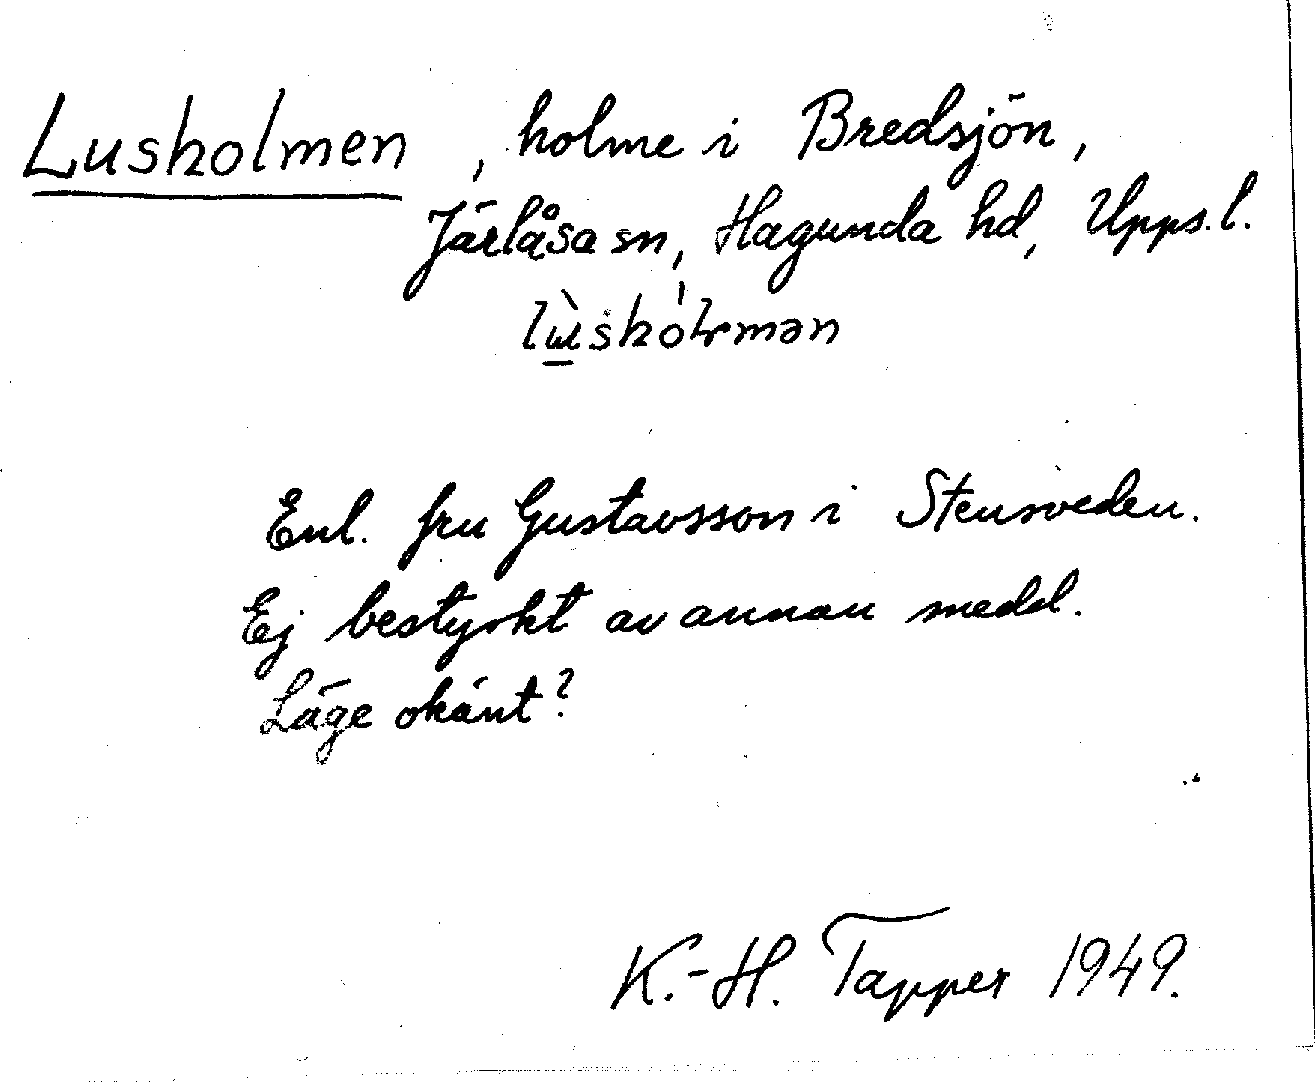 Lusholmen, holme i Bredsjön,
Järlåsa sn, Hagunda hd, Upps. l.
Enl. fru Gustavsson i Stensveden.
Ej bestyrkt av annan medd.
Läge okänt?
K.-H. Tapper 1949.